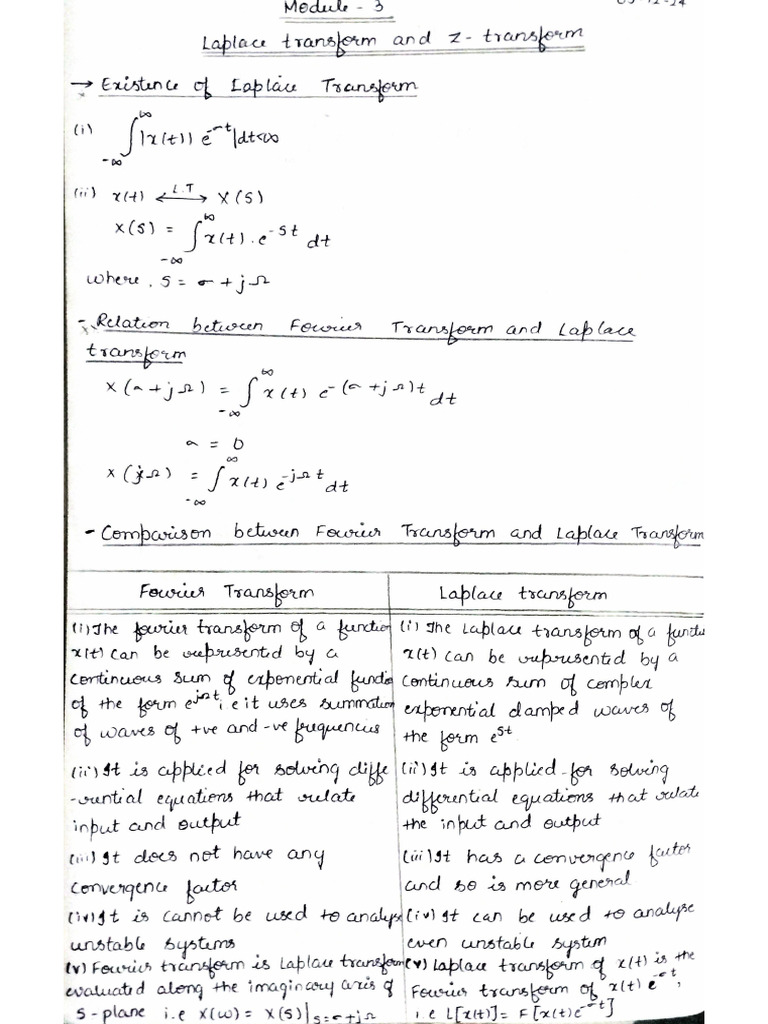 Module - 3
Laplace transform and z-transform
→ Existence of Laplace Transform
(i) ∫_{-∞}^{∞} |x(t)) e^{-σt}|dt<∞
(ii) x(t) <—L.T—> X(S)
X(S) = ∫_{-∞}^{∞} x(t). e^{-St} dt
where, S = σ + jΩ
- Relation between Fourier Transform and Laplace
transform
X(σ+jΩ) = ∫_{-∞}^{∞} x(t) e^{-(σ+jΩ)t} dt
σ = 0
X(jΩ) = ∫_{-∞}^{∞} x(t) e^{-jΩt} dt
- Comparison between Fourier Transform and Laplace Transform
Fourier Transform
(i) The fourier transform of a function
x(t) can be represented by a
continuous sum of exponential
of the form e^{jΩt}, i.e it uses summation
of waves of +ve and -ve frequencies
(ii) It is applied for solving diffe
-rential equations that relate
input and output
(iii) It does not have any
convergence factor
(iv) It is cannot be used to analyse
unstable systems
(v) Fourier transform is Laplace transform
evaluated along the imaginary axis of
S-plane i.e X(ω) = X(S)|S=σ+jω
Laplace transform
(i) The Laplace transform of a
x(t) can be represented by a
continuous sum of complex
exponential damped waves of
the form e^{St}
(ii) It is applied for solving
differential equations that relate
the input and output
(iii) It has a convergence factor
and so is more general
(iv) It can be used to analyse
even unstable system
(v) Laplace transform of x(t) is the
Fourier transform of x(t) e^{-σt},
i.e L[x(t)] = F[x(t)e^{-σt}]